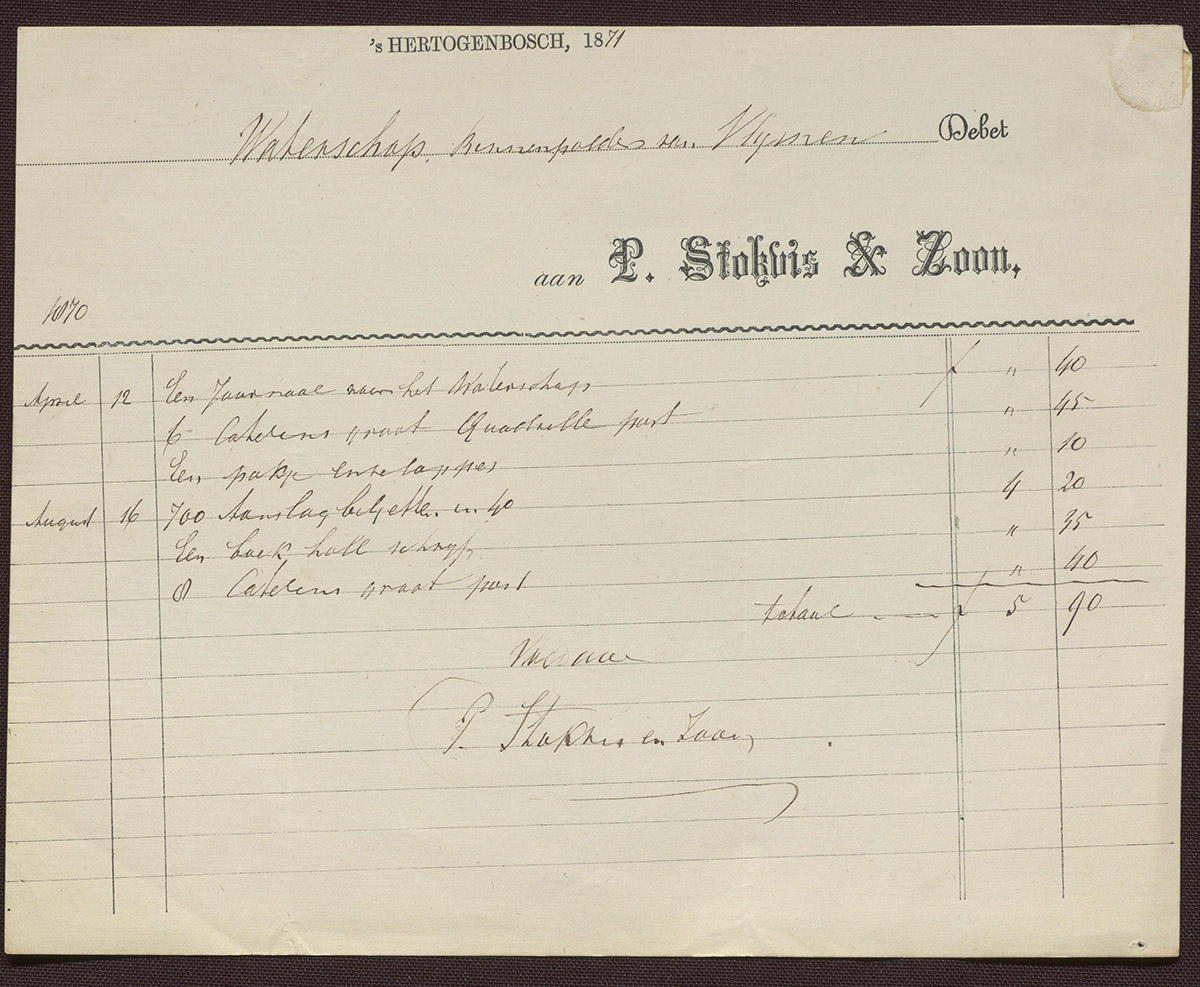 's HERTOGENBOSCH, 1871
Waterschap Binnenpolder van Vlijmen Debet
aan P. Stokvis & Zoon,
1870
April 12 Een Journaal voor het Waterschap ƒ " 40
6 Catelens groot Quadrille post " 45
Een pakje enveloppes " 10
August 16 700 Aanslagbiljetten in 4o 4 20
Een boek holl schrijfp. " 35
8 Catelens groot post " 40
totaal ƒ 5 90
Voldaan
P. Stokvis en Zoon